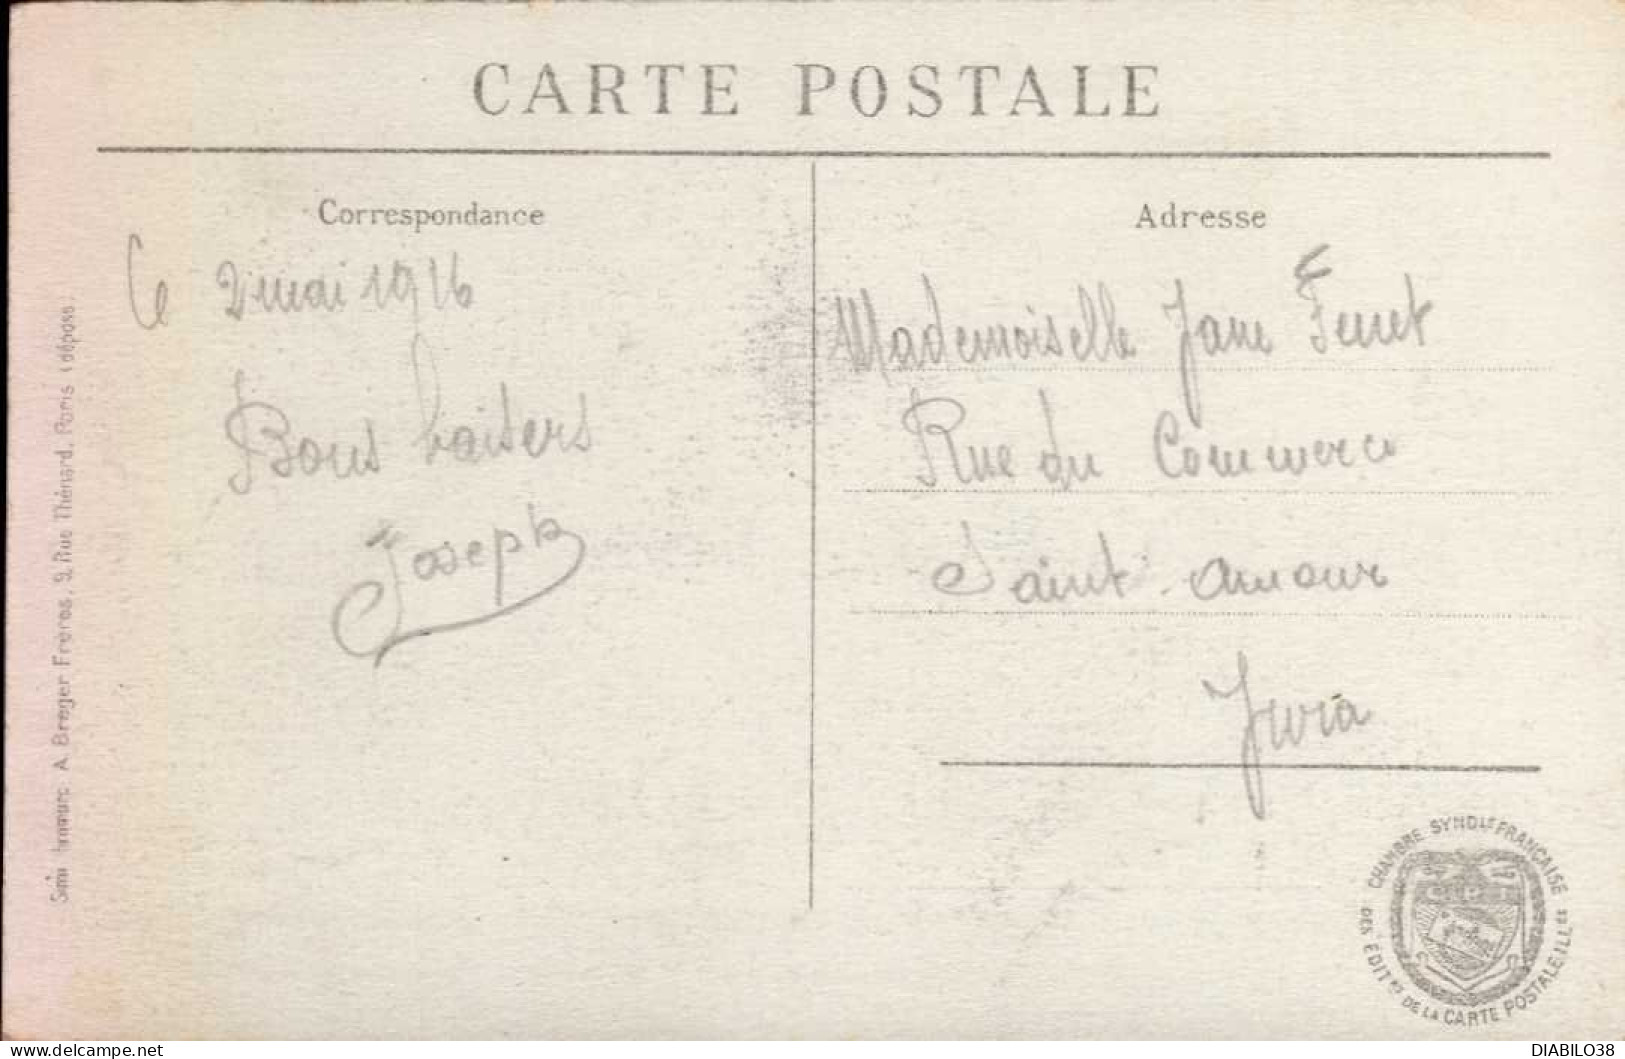 CARTE POSTALE
Correspondance
Le 2 mai 1916
Bons baisers
Joseph
Adresse
Mademoiselle Jane
Rue du Commerce
Saint-Amour
Jura
Semi bromure A. Breger Frères, 9, Rue Thénard, Paris (déposé)
CHAMBRE SYNDLE FRANÇAISE
DES ÉDITRS DE LA CARTE POSTALE ILLÉE
DIABILO38